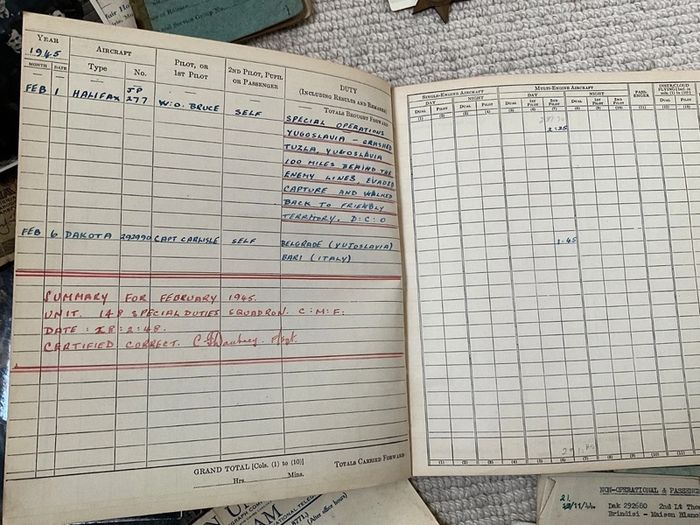 YEAR
1945
AIRCRAFT
PILOT, OR
1ST PILOT
2ND PILOT, PUPIL
OR PASSENGER
DUTY
(INCLUDING RESULTS AND REMARKS)
MONTH DATE Type No.
TOTALS BROUGHT FORWARD
FEB 1 HALIFAX JP 277 W.O. BRUCE SELF
SPECIAL OPERATIONS
YUGOSLAVIA - CRASHED
TUZLA, YUGOSLAVIA
100 MILES BEHIND THE
ENEMY LINES, EVADED
CAPTURE AND WALKED
BACK TO FRIENDLY
TERRITORY. D:C:O
FEB 6 DAKOTA 292990 CAPT CARLISLE SELF
BELGRADE (YUJOSLAVIA)
BARI (ITALY)
SUMMARY FOR FEBRUARY 1945.
UNIT. 148 SPECIAL DUTIES SQUADRON. C:M:F:
DATE: 28:2:45.
CARTIFIED CORRECT.
GRAND TOTAL [Cols. (1) to (10)]
Hrs. Mins.
TOTALS CARRIED FORWARD
SINGLE-ENGINE AIRCRAFT
MULTI-ENGINE AIRCRAFT
PASSENGER
DAY NIGHT DAY NIGHT
DUAL PILOT DUAL PILOT DUAL 1ST PILOT 2ND PILOT DUAL 1ST PILOT 2ND PILOT
2:35
1:45
NON-OPERATIONAL & PASSENGER
21.
Dak 292680 2nd Lt
Brindisi - Maison Blanc